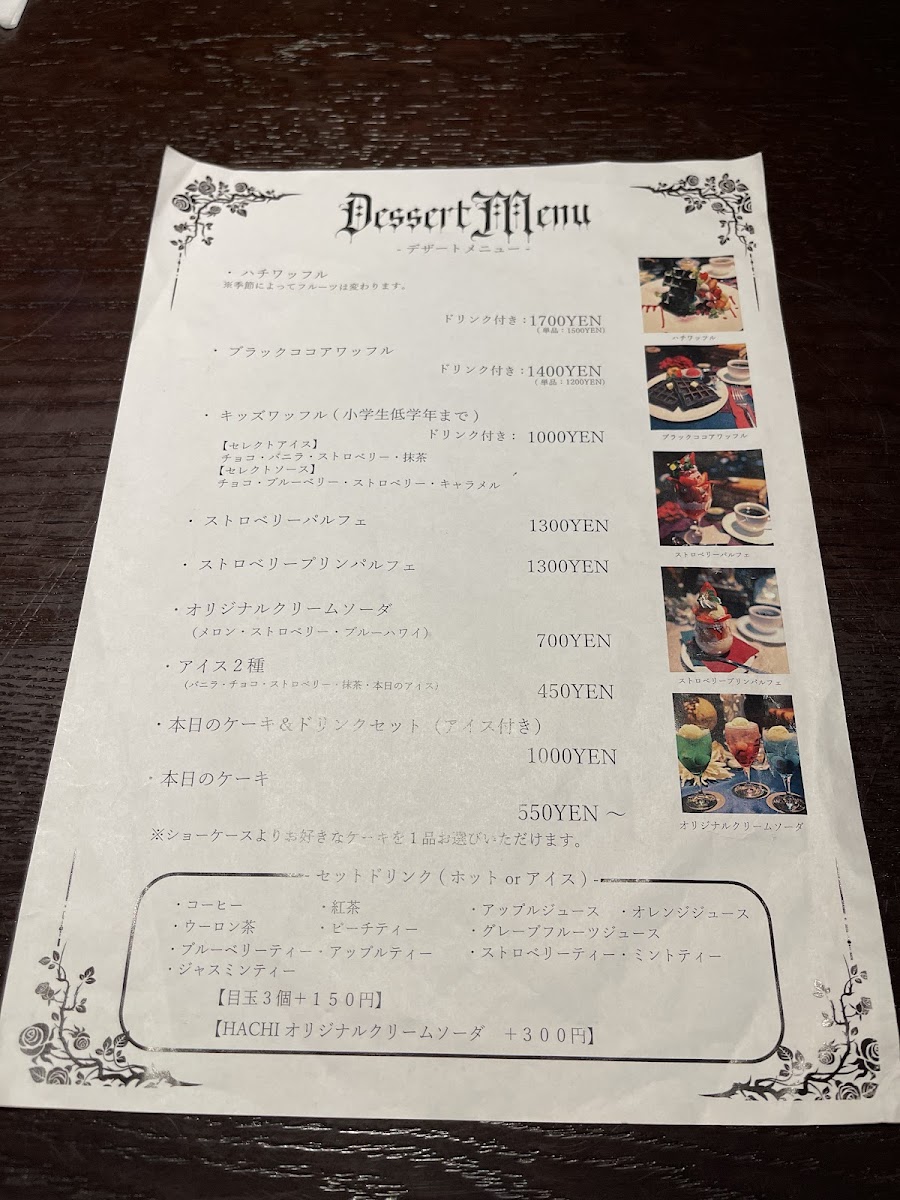 Dessert Menu
- デザートメニュー -
・ハチワッフル
※季節によってフルーツは変わります。
ドリンク付き：1700YEN
(単品：1500YEN)
・ブラックココアワッフル
ドリンク付き：1400YEN
(単品：1200YEN)
・キッズワッフル ( 小学生低学年まで )
ドリンク付き： 1000YEN
【セレクトアイス】
チョコ・バニラ・ストロベリー・抹茶
【セレクトソース】
チョコ・ブルーベリー・ストロベリー・キャラメル
・ストロベリーパルフェ 1300YEN
・ストロベリープリンパルフェ 1300YEN
・オリジナルクリームソーダ
（メロン・ストロベリー・ブルーハワイ）
700YEN
・アイス２種
（バニラ・チョコ・ストロベリー・抹茶・本日のアイス）
450YEN
・本日のケーキ＆ドリンクセット（アイス付き）
1000YEN
・本日のケーキ
550YEN ～
※ショーケースよりお好きなケーキを１品お選びいただけます。
ハチワッフル
ブラックココアワッフル
ストロベリーパルフェ
ストロベリープリンパルフェ
オリジナルクリームソーダ
- セットドリンク ( ホット or アイス ) -
・コーヒー ・紅茶 ・アップルジュース ・オレンジジュース
・ウーロン茶 ・ピーチティー ・グレープフルーツジュース
・ブルーベリーティー・アップルティー ・ストロベリーティー・ミントティー
・ジャスミンティー
【目玉３個＋１５０円】
【HACHI オリジナルクリームソーダ ＋３００円】